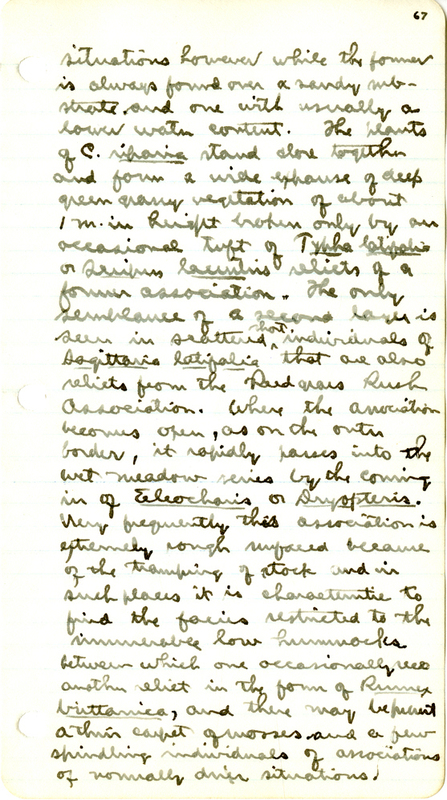 67
situations however while the former
is always found over a sandy sub-
strate and one with usually a
lower water content. The plants
of C. riparia stand close together
and form a wide expanse of deep
green grassy vegetation of about
1 m. in height broken only by an
occasional tuft of Typha latifolia
or Scirpus lacustris relicts of a
former association. The only
semblance of a second layer is
seen in scattered short individuals of
Sagittaria latifolia that are also
relicts from the Reedgrass Rush
Association. Where the association
becomes open, as on the outer
border, it rapidly passes into the
wet meadow series by the coming
in of Eleocharis or Dryopteris.
Very frequently this association is
extremely rough surfaced because
of the tramping of stock and in
such places it is characteristic to
find the facies restricted to the
innumerable low hummocks
between which one occasionally sees
another relict in the form of Rumex
brittanica, and there may be present
a thin carpet of mosses and a few
spindling individuals of associations
of normally drier situations.